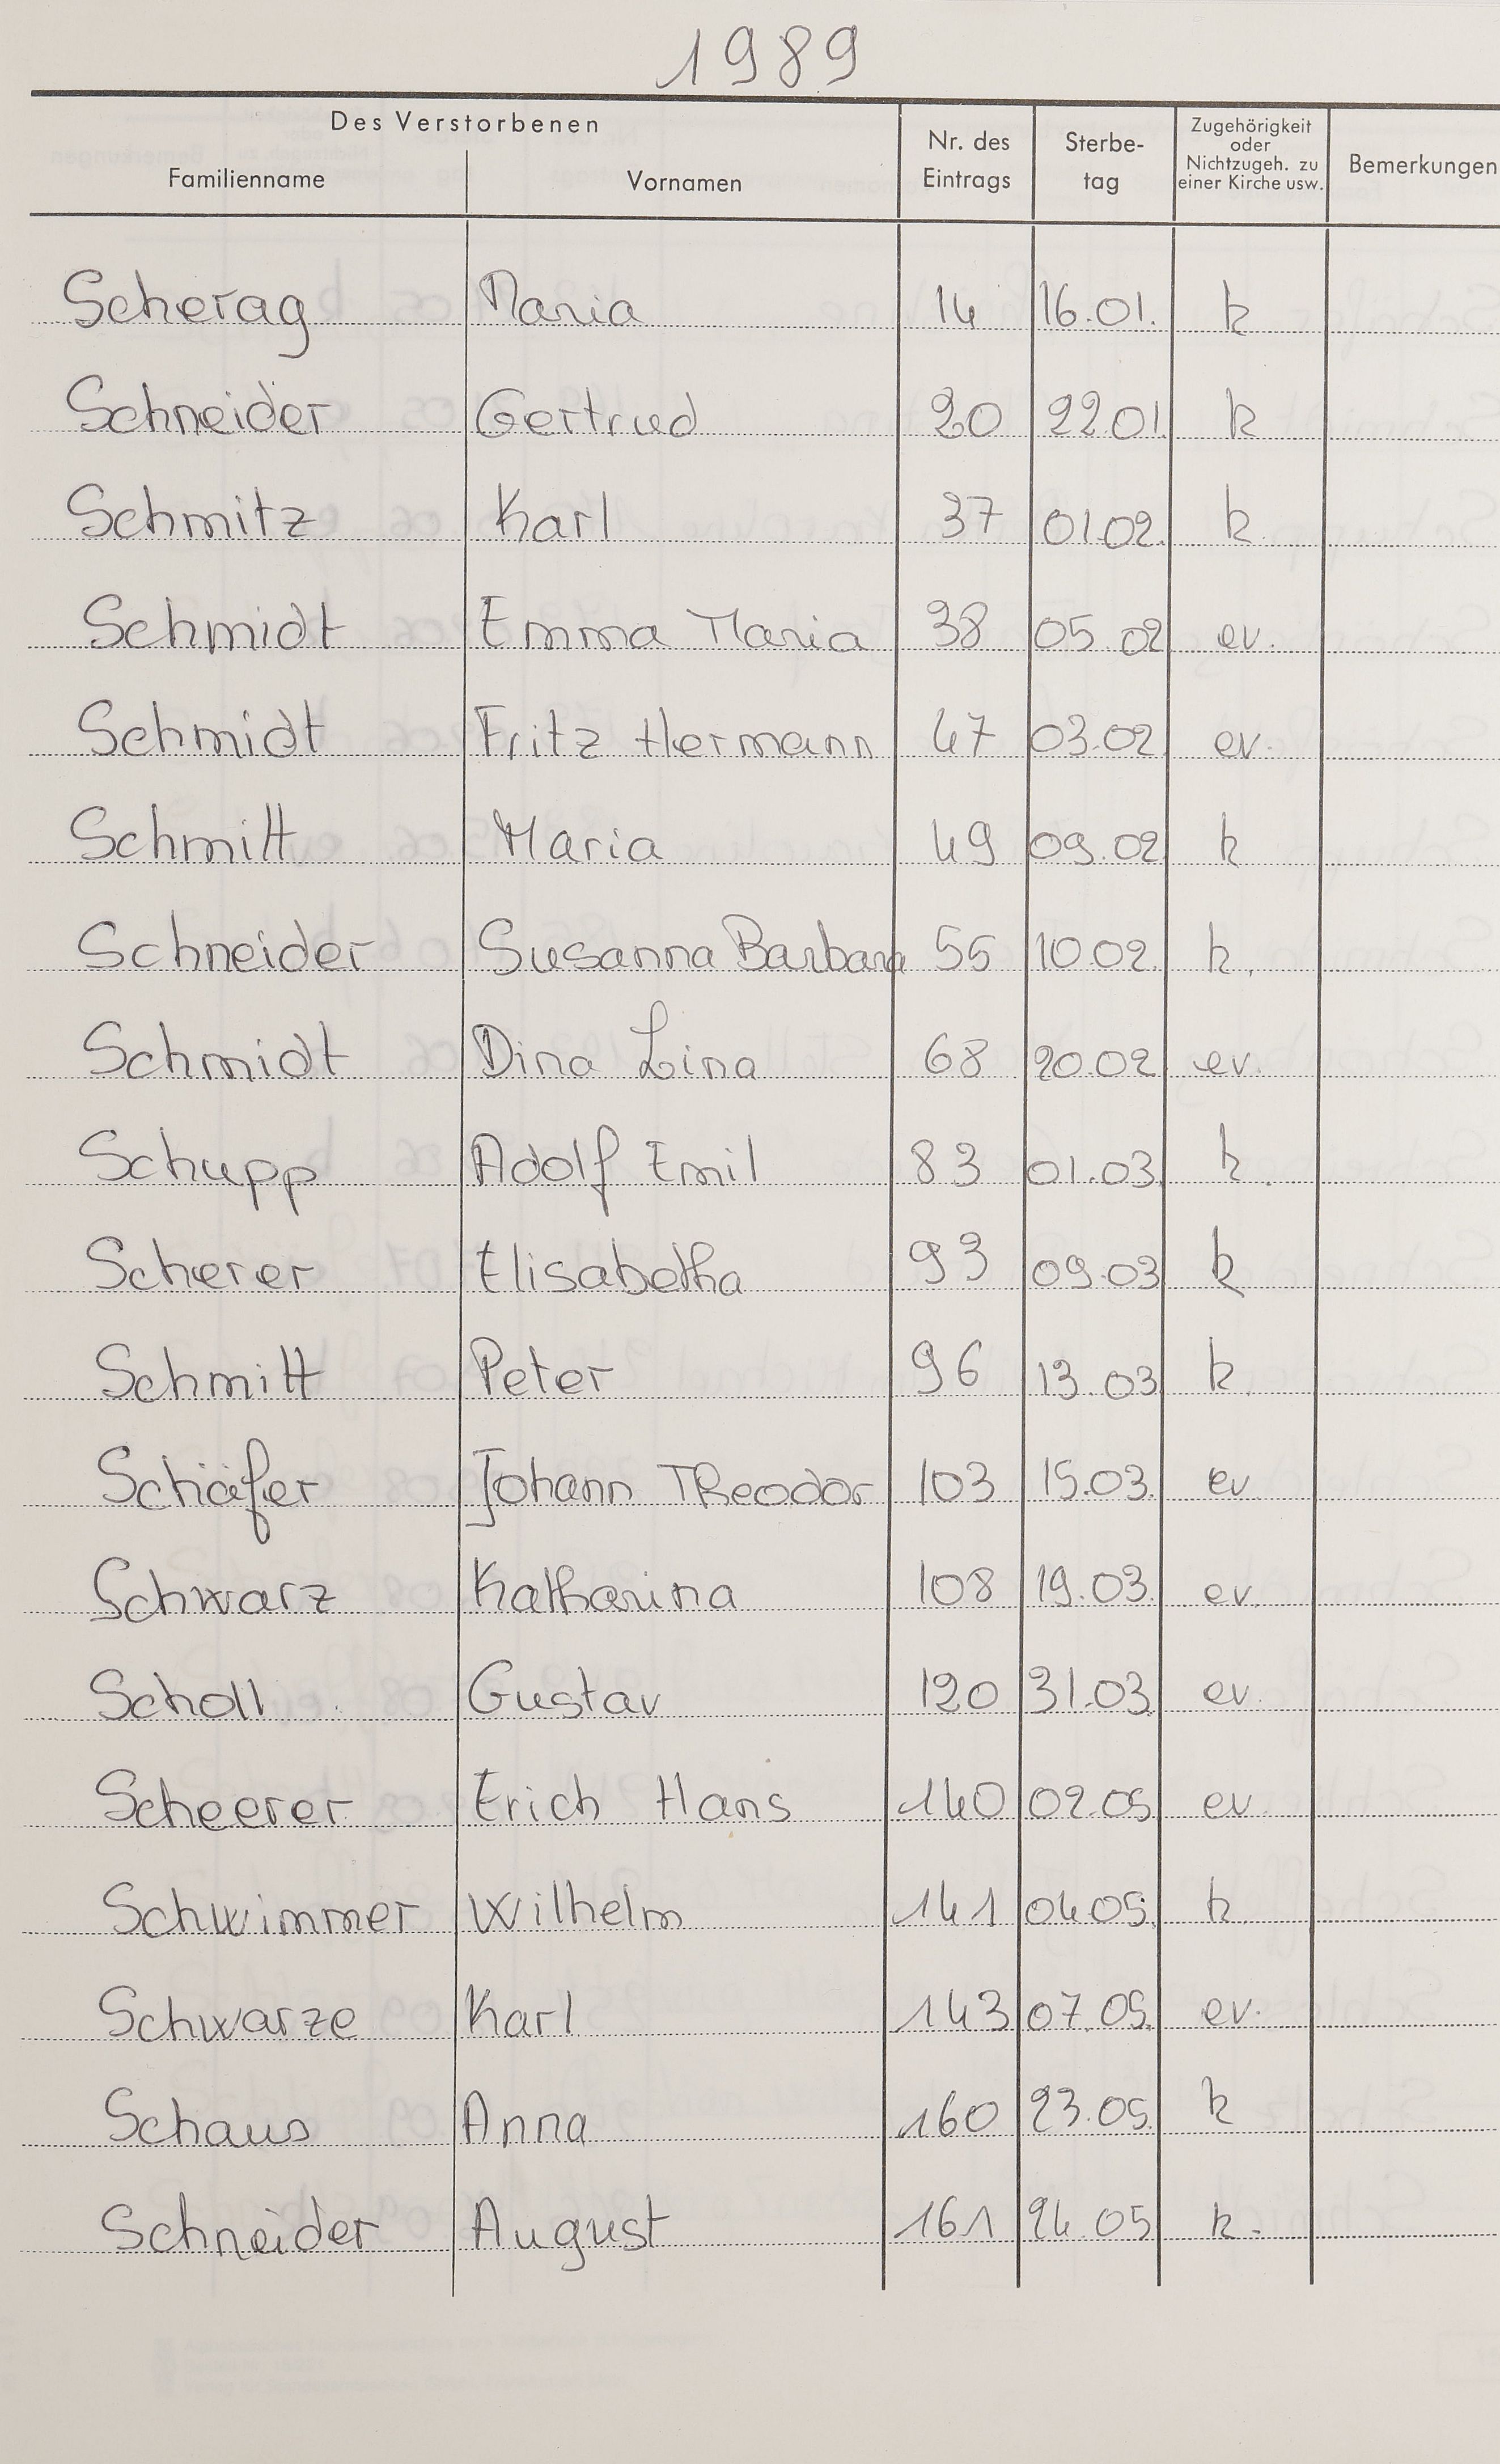 1989
Des Verstorbenen
Familienname Vornamen Nr. des Eintrags Sterbe-tag Zugehörigkeit oder Nichtzugeh. zu einer Kirche usw. Bemerkungen
Scherag Maria 14 16.01. k
Schneider Gertrud 20 22.01. k
Schmitz Karl 37 01.02. k
Schmidt Emma Maria 38 05.02 ev.
Schmidt Fritz Hermann 47 03.02. ev.
Schmitt Maria 49 09.02 k
Schneider Susanna Barbara 55 10.02. k.
Schmidt Dina Lina 68 20.02 ev.
Schupp Adolf Emil 83 01.03. k.
Scherer Elisabetha 93 09.03 k
Schmitt Peter 96 13.03 k.
Schäfer Johann Theodor 103 15.03. ev
Schwarz Katharina 108 19.03. ev.
Scholl Gustav 120 31.03. ev.
Scheerer Erich Hans 140 02.05 ev
Schwimmer Wilhelm 141 04.05. k
Schwarze Karl 143 07.05. ev.
Schaus Anna 160 23.05. k
Schneider August 161 24.05 k.